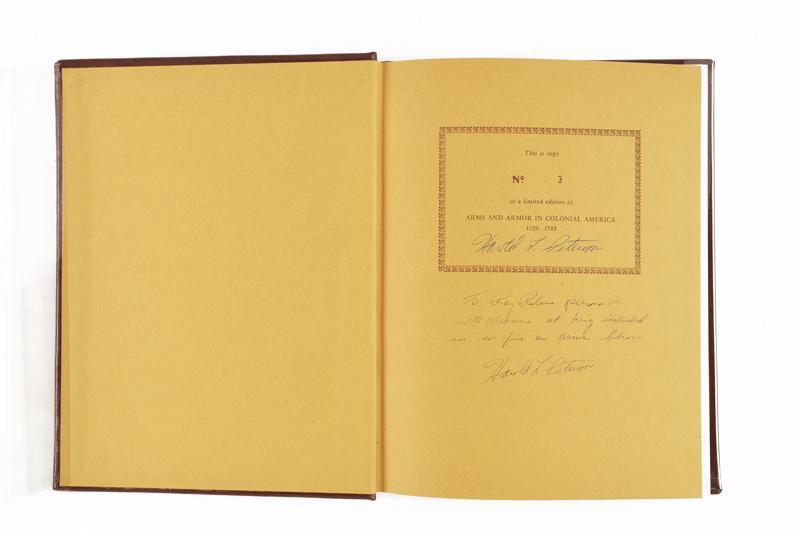 This is copy
Nº 3
of a limited edition of
ARMS AND ARMOR IN COLONIAL AMERICA
1526-1783
Harold L. Peterson
To Ray personally
with pleasure at being included
in so fine an arms library
Harold L. Peterson